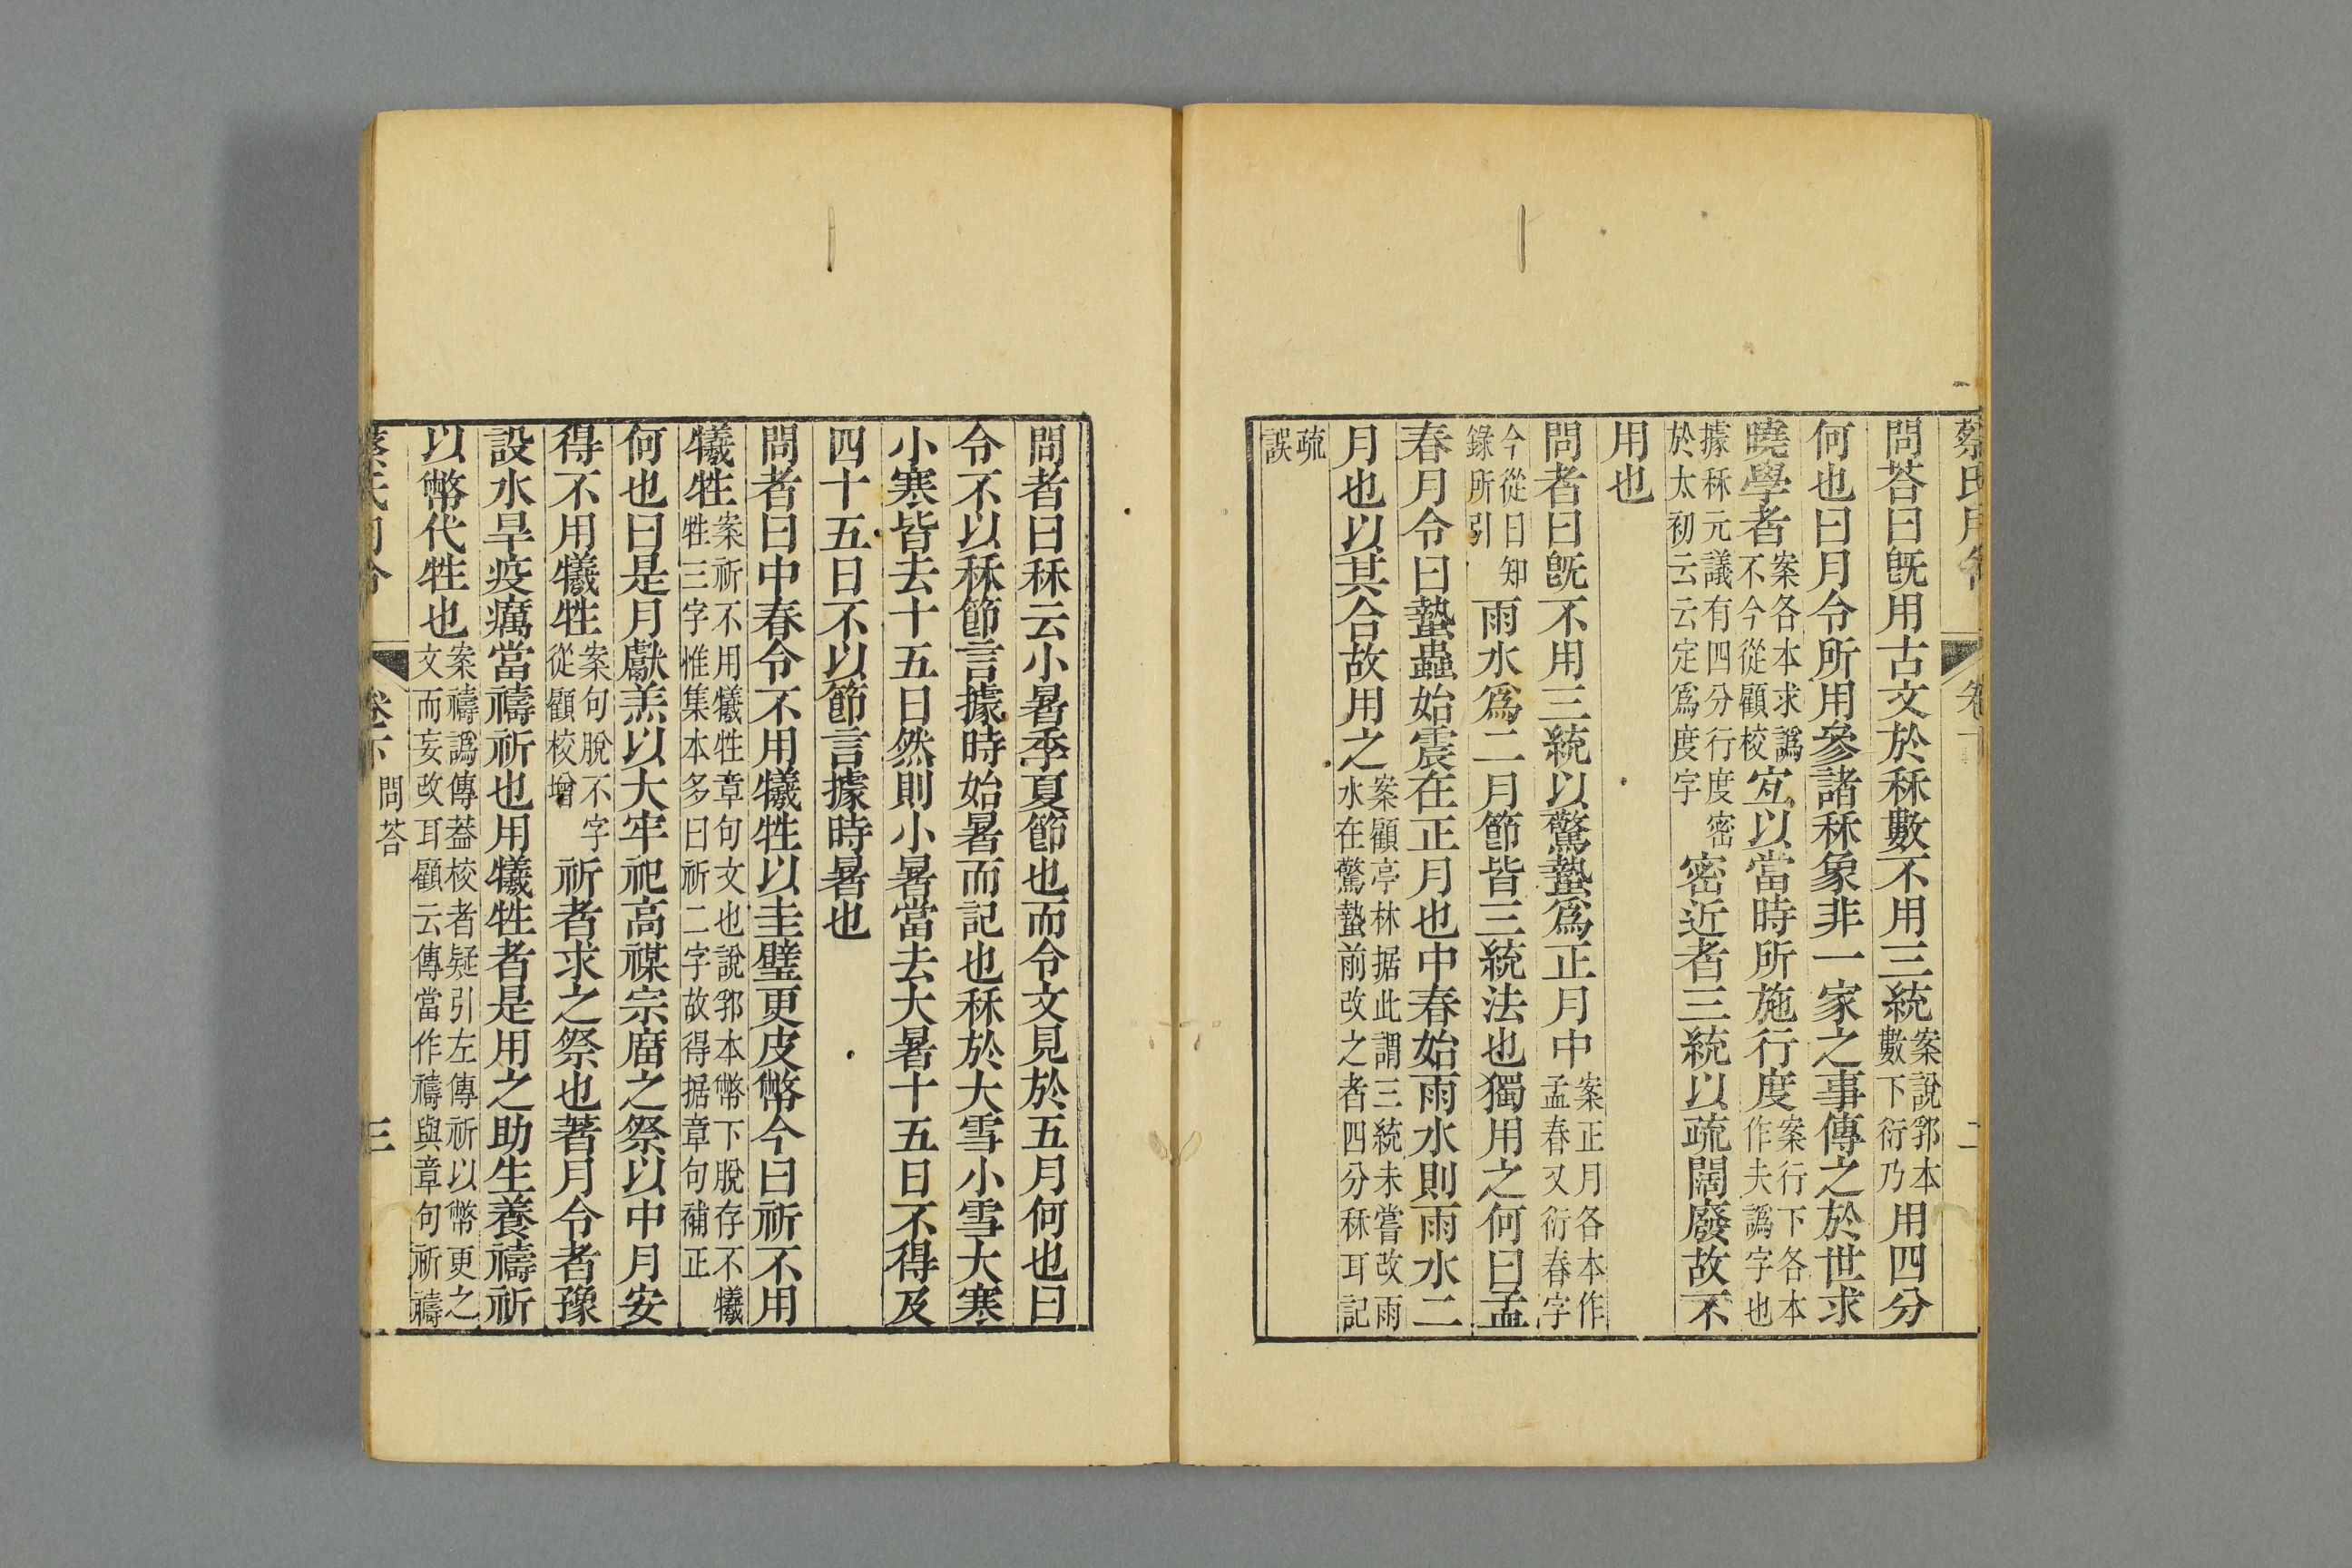 蔡氏月令 卷下 二
問荅曰旣用古文於秝數不用三統案說郛本數下衍乃用四分
何也曰月令所用參諸秝象非一家之事傳之於世求
曉學者案各本求譌不今從顧校宐以當時所施行度案行下各本作夫譌字也
據秝元議有四分行度密於太初云云定爲度字密近者三統以疏闊廢故不
用也
問者曰旣不用三統以驚蟄爲正月中案正月各本作孟春又衍春字
今從日知錄所引雨水爲二月節皆三統法也獨用之何曰孟
春月令曰蟄蟲始震在正月也中春始雨水則雨水二
月也以其合故用之案顧亭林据此謂三統未嘗改雨水在驚蟄前改之者四分秝耳記
疏誤
問者曰秝云小暑季夏節也而令文見於五月何也曰
令不以秝節言據時始暑而記也秝於大雪小雪大寒
小寒皆去十五日然則小暑當去大暑十五日不得及
四十五日不以節言據時暑也
問者曰中春令不用犧牲以圭璧更皮幣今曰祈不用
犧牲案祈不用犧牲章句文也說郛本幣下脫存不犧牲三字惟集本多曰祈二字故得据章句補正
何也曰是月獻羔以大牢祀高禖宗庿之祭以中月安
得不用犧牲案句脫不字從顧校增祈者求之祭也著月令者豫
設水旱疫癘當禱祈也用犧牲者是用之助生養禱祈
以幣代牲也案禱譌傳葢校者疑引左傳祈以幣更之文而妄改耳顧云傳當作禱與章句祈禱
蔡氏月令 卷下 問荅 三